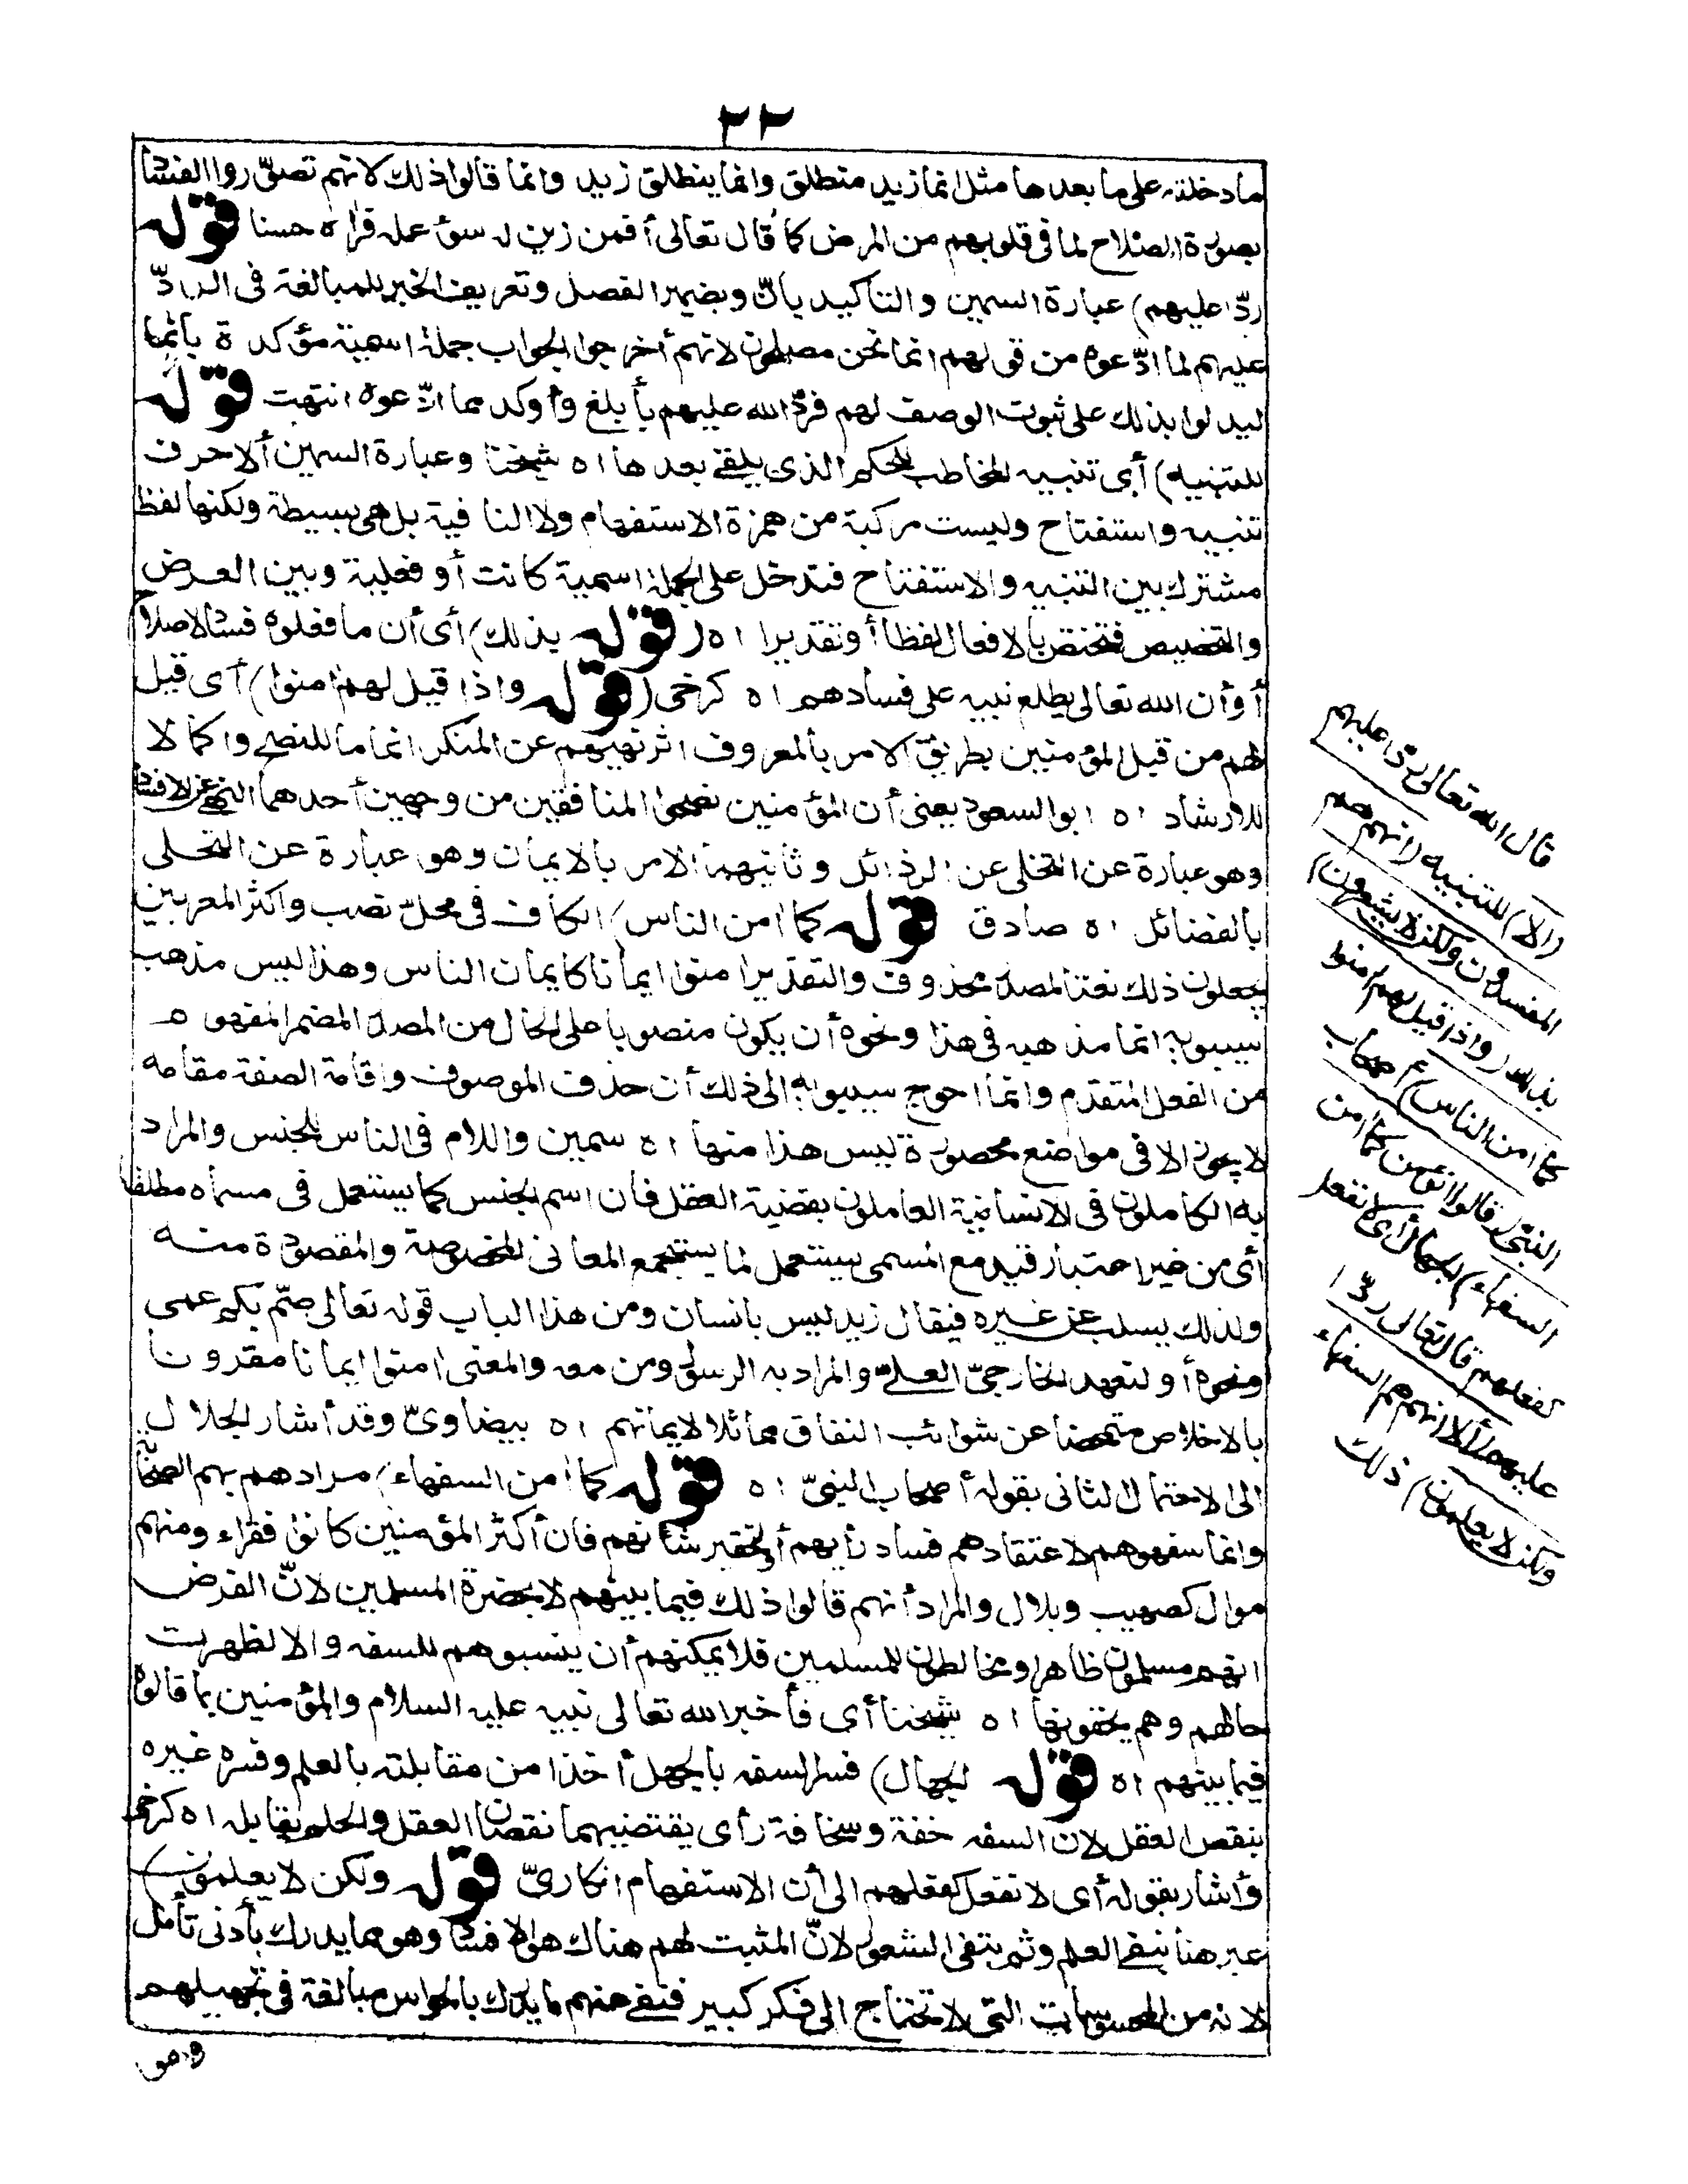 ٢٢
ما دخلته على ما بعدها مثل انما زيد منطلق وانما ينطلق زيد وانما قالوا ذلك لانهم تصوّروا الفساد
بصورة الصلاح لما فى قلوبهم من المرض كما قال تعالى أفمن زين له سوء عمله فرآه حسنا قوله
ردّا عليهم) عبارة السمين والتاكيد بانّ وبضمير الفصل وتعريف الخبر للمبالغة فى الردّ
عليهم لما ادّعوه من قولهم انما نحن مصلحون لانهم أخرجوا الجواب جملة اسمية مؤكدة بانما
ليدلوا بذلك على ثبوت الوصف لهم فردّ الله عليهم بأبلغ وأوكد مما ادّعوه انتهت قوله
للتنبيه) أى تنبيه المخاطب للحكم الذى يلقى بعدها اه شيخنا وعبارة السمين ألا حرف
تنبيه واستفتاح وليست مركبة من همزة الاستفهام ولا النافية بل هى بسيطة ولكنها لفظ
مشترك بين التنبيه والاستفتاح فتدخل على الجملة اسمية كانت أو فعلية وبين العرض
والتحضيض فتختص بالافعال لفظا أو تقديرا اه (قوله بذلك) أى أن ما فعلوه فساد لا صلاح
أو أن الله تعالى يطلع نبيه على فسادهم اه كرخى (قوله واذا قيل لهم امنوا) أى قيل
لهم من قبل المؤمنين بطريق الامر بالمعروف اثر نهيهم عن المنكر اتماما للنصح واكمالا
للارشاد اه ابو السعود يعنى أن المؤمنين نصحوا المنافقين من وجهين أحدهما النهى عن الافساد
وهو عبارة عن التخلى عن الرذائل وثانيهما الامر بالايمان وهو عبارة عن التحلى
بالفضائل اه صادق قوله كما امن الناس) الكاف فى محلّ نصب واكثر المعربين
يجعلون ذلك نعتا لمصدر محذوف والتقدير امنوا ايمانا كايمان الناس وهذا ليس مذهب
سيبويه انما مذهبه فى هذا ونحوه أن يكون منصوبا على الحال من المصدر المضمر المفهوم
من الفعل المتقدم وانما احوج سيبويه الى ذلك أن حذف الموصوف واقامة الصفة مقامه
لا يجوز الا فى مواضع محصورة ليس هذا منها اه سمين واللام فى الناس للجنس والمراد
به الكاملون فى الانسانية العاملون بقضية العقل فان اسم الجنس كما يستعمل فى مسماه مطلقا
أى من غير اعتبار قيد مع المسمى يستعمل لما يستجمع المعانى المخصوصة والمقصودة منه
ولذلك يسلب عن غيره فيقال زيد ليس بانسان ومن هذا الباب قوله تعالى صمّ بكم عمى
ونحوه أو لتعهد الخارجىّ العلمىّ والمراد به الرسول ومن معه والمعنى امنوا ايمانا مقرونا
بالاخلاص متمحضا عن شوائب النفاق مماثلا لايمانهم اه بيضاوىّ وقد أشار الجلال
الى الاحتمال الثانى بقوله أصحاب النبىّ اه قوله كما امن السفهاء) مرادهم بهم الصحابة
وانما سفهوهم لاعتقادهم فساد رأيهم أو لتحقير شأنهم فان أكثر المؤمنين كانوا فقراء ومنهم
موال كصهيب وبلال والمراد أنهم قالوا ذلك فيما بينهم لا بحضرة المسلمين لانّ الفرض
انهم مسلمون ظاهرا ومخالطون للمسلمين فلا يمكنهم أن ينسبوهم للسفه والا لظهرت
حالهم وهم يخفونها اه شيخنا أى فأخبر الله تعالى نبيه عليه السلام والمؤمنين بما قالوه
فيما بينهم اه قوله الجهال) فسر السفه بالجهل أخذا من مقابلته بالعلم وفسره غيره
بنقص العقل لان السفه خفة وسخافة رأى يقتضيهما نقصان العقل والحلم يقابله اه كرخى
وأشار بقوله أى لا نفعل كفعلهم الى أن الاستفهام انكارىّ قوله ولكن لا يعلمون)
عبر هنا بنفى العلم وثم بنفى الشعور لانّ المثبت لهم هناك هو الافساد وهو مما يدرك بأدنى تأمل
لانه من المحسوسات التى لا تحتاج الى فكر كبير فنفى عنهم ما يدرك بالحواس مبالغة فى تجهيلهم
وهو
قال الله تعالى ردّا عليهم
(الا) للتنبيه (انهم هم
المفسدون ولكن لا يشعرون)
بذلك (واذا قيل لهم امنوا
كما امن الناس) أصحاب
النبىّ (قالوا انؤمن كما امن
السفهاء) الجهال أى لا نفعل
كفعلهم قال تعالى ردّا
عليهم (ألا انهم هم السفهاء
ولكن لا يعلمون) ذلك